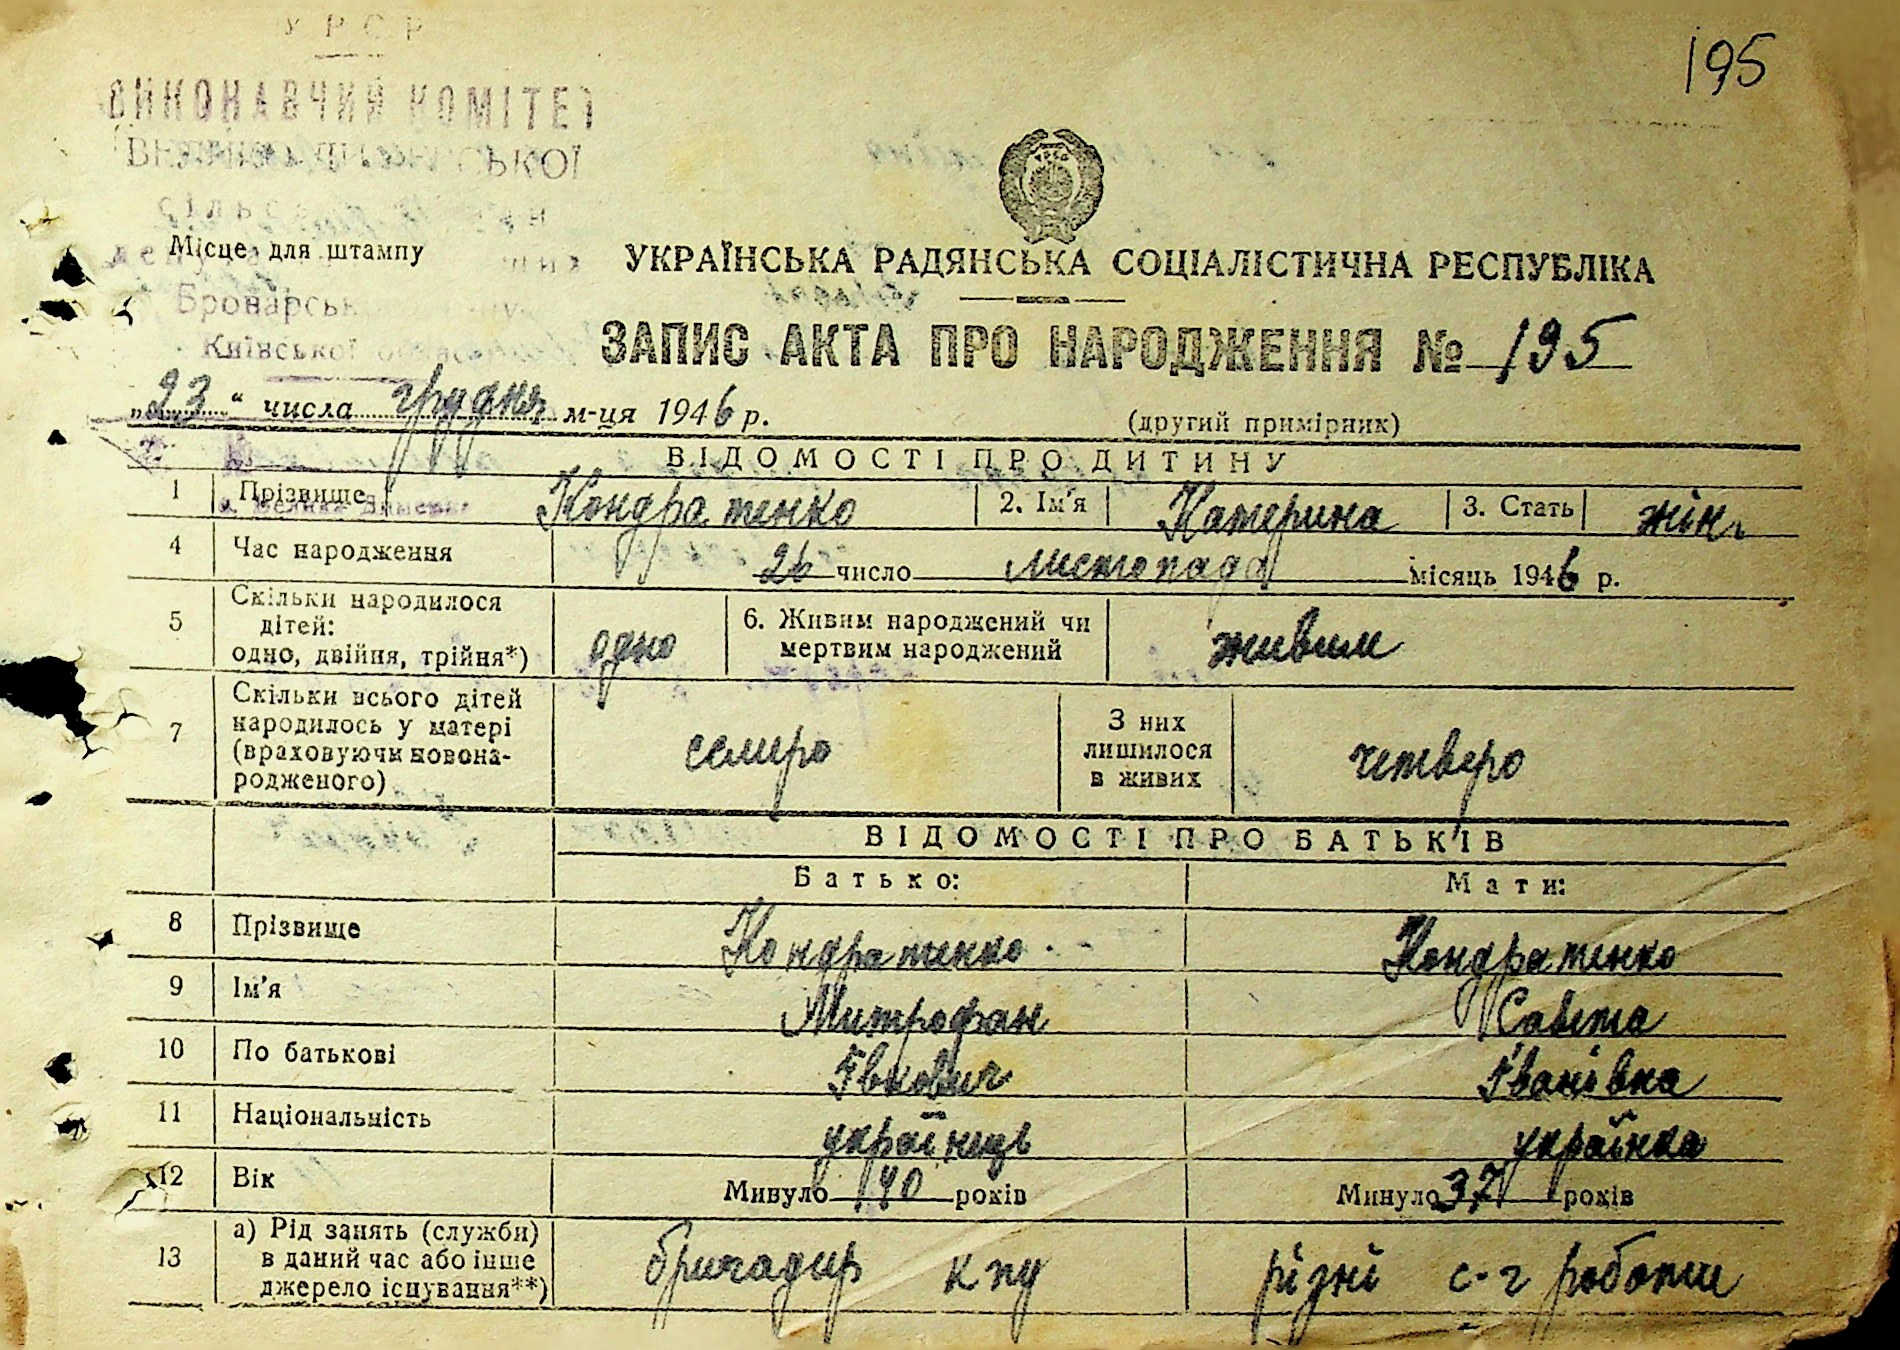 195
УРСР
ВИКОНАВЧИЙ КОМІТЕТ
СЬКОЇ
Місце для штампу
УКРАЇНСЬКА РАДЯНСЬКА СОЦІАЛІСТИЧНА РЕСПУБЛІКА
Київської
ЗАПИС АКТА ПРО НАРОДЖЕННЯ № 195
„23“ числа грудня м-ця 1946 р.
(другий примірник)
ВІДОМОСТІ ПРО ДИТИНУ
1 Прізвище Кондратенко 2. Ім'я Катерина 3. Стать жін.
4 Час народження 26 число листопада місяць 1946 р.
5 Скільки народилося
дітей:
одно, двійня, трійня*)
одно
6. Живим народжений чи
мертвим народжений
живим
7 Скільки всього дітей
народилось у матері
(враховуючи новона-
родженого)
семеро
З них
лишилося
в живих
четверо
ВІДОМОСТІ ПРО БАТЬКІВ
Батько: Мати:
8 Прізвище Кондратенко Кондратенко
9 Ім'я Митрофан Савета
10 По батькові Івнович Іванівна
11 Національність українець українка
12 Вік Минуло 40 років Минуло 37 років
13 а) Рід занять (служби)
в даний час або інше
джерело існування**)
бригадир кпу
різні с-г роботи